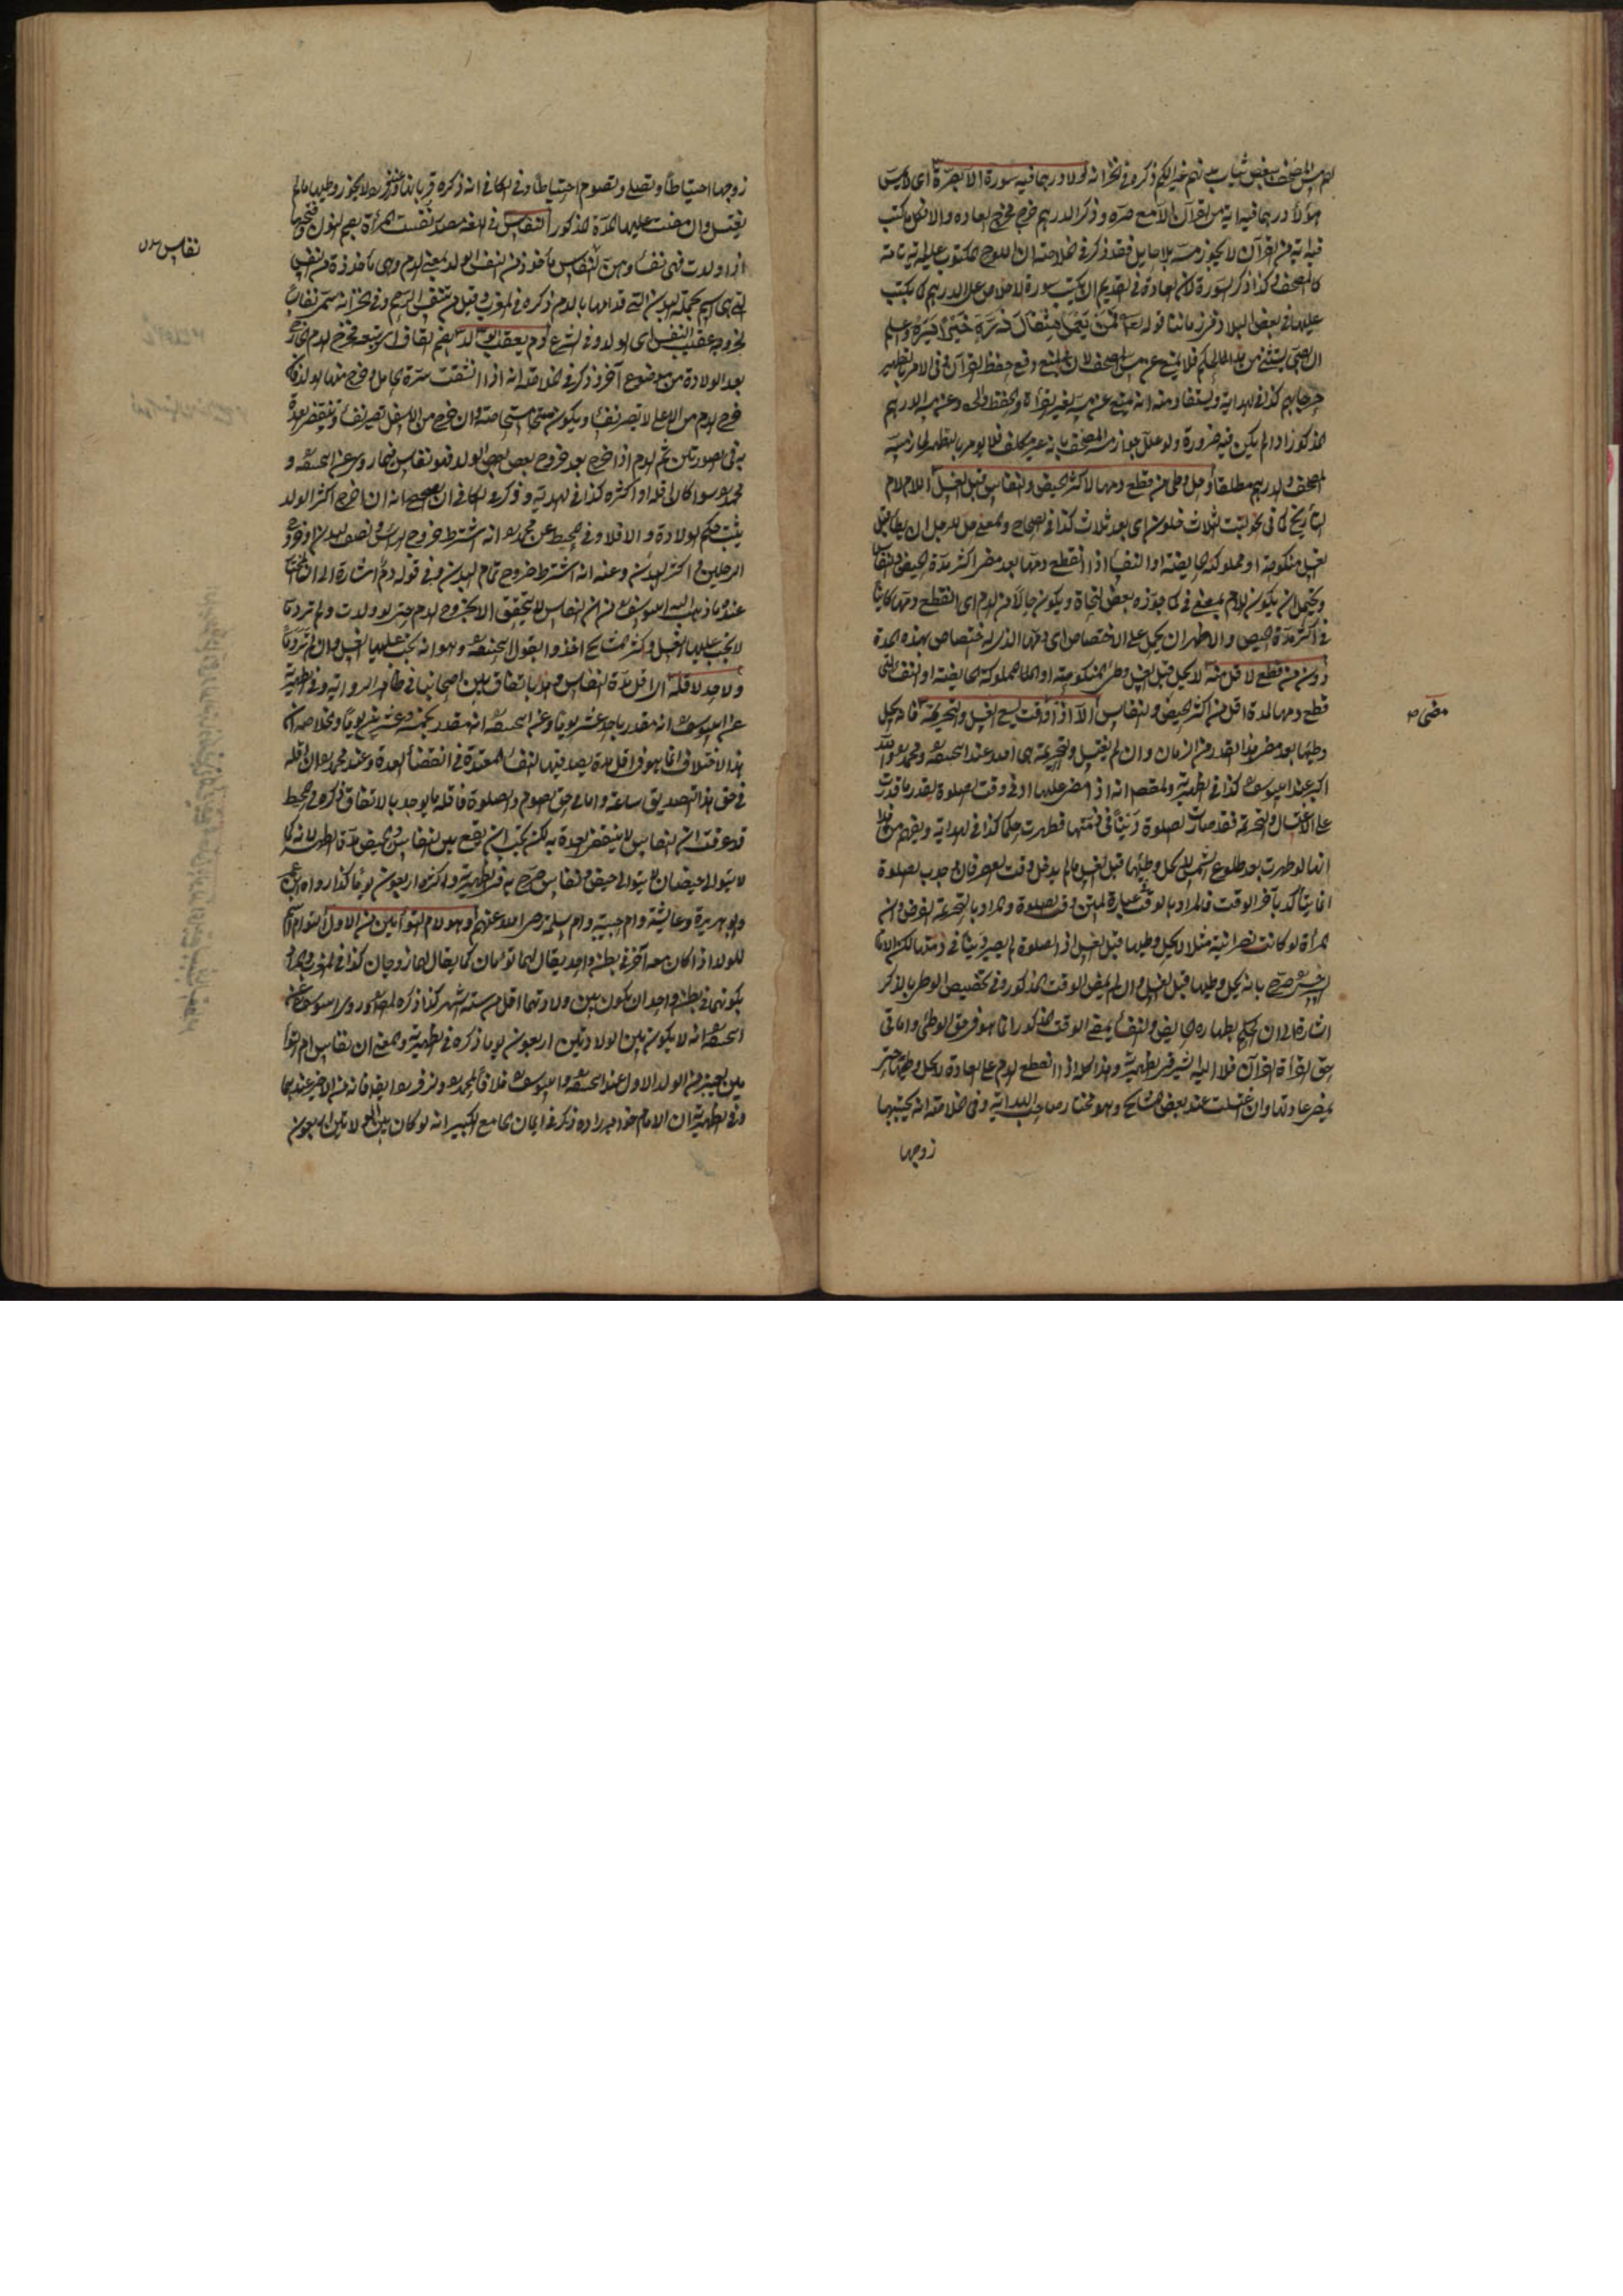 هؤلاء درهما فيه اية من القرآن الا مع صرة وذكر الدرهم خرج مخرج العادة والا فكل ما كتب
فيه اية من القرآن لا يجوز مسه بلا حايل فقد ذكر في الخلاصة ان اللوح المكتوب عليه اية تامة
كالمصحف كذا ذكر السورة لان العادة في القديم ان يكتب سورة الاخلاص على الدرهم كما يكتب
عليها في بعض البلاد في زماننا قوله تعالى فمن يعمل مثقال ذرة خيرا يره وعلم
ان الصبي يستثنى من هذا الحكم فلا يمنع عن مس المصحف لان في المنع وقع حفظ القرآن وفي الامر بالتطهير
حرجا بهم كذا في الهداية ويستفاد منه انه يمنع عن مسه لغير القرأة والحفظ
المذكور اذا لم يكن فيه ضرورة ولو علل جواز مسه المصحف بانه غير مكلف فلا يؤمر بالتطهر لجاز مسه
المصحف والدرهم مطلقا وحل وطى من قطع دمها لاكثر الحيض والنفاس قبل الغسل اللام لام
التأريخ كما في نحو لبثت لثلاث خلون اى بعد ثلاث كذا في الصحاح والمعنى حل للرجل ان يطأ قبل
الغسل منكوحته او مملوكته الحايضة او النفسا اذا انقطع دمها بعد مضى اكثر مدة الحيض والنفاس
ويحتمل ان يكون اللام بمعنى في كما جوزه بعض النحاة ويكون حالا من الدم اى انقطع دمها كاينا
في اكثر مدة الحيض والاظهر ان يحمل على الاختصاص اى دمها الذى له اختصاص بهذه المدة
دون من قطع لاقل منه لا يحل قبل الغسل وطئ المنكوحة او المملوكة الحايضة او النفسا التى
قطع دمها لمدة اقل من اكثر الحيض والنفاس الا اذا وقت يسع الغسل والتحريمة فانه يحل
مضى صح
وطيها بعد مضى هذا القدر من الزمان وان لم يغتسل والتحريمة هى الله عند ابى حنيفة ومحمد والله
اكبر عند ابى يوسف كذا في الظهيرية والمقصد انه اذا مضى عليها ادنى وقت الصلوة بقدر ما قدرت
على الاغتسال والتحريمة فقد صارت الصلوة دينا في ذمتها فطهرت حكما كذا في الهداية ويفهم من هذا
انها لو طهرت بعد طلوع الشمس لا يحل وطيها قبل الغسل ما لم يدخل وقت العصر فان وجوب الصلوة
انما يتأكد بآخر الوقت فالمراد بالوقت عبارة المتن وقت الصلوة والمراد بالتحريمة الفرض وان
المرأة لو كانت نصرانية مثلا لا يحل وطيها قبل الغسل اذ الصلوة لم يصر دينا في ذمتها لكن الاما
السرخسى صرح بانه يحل وطيها قبل الغسل وان لم يمض الوقت المذكور وفي تخصيص الوطى بالذكر
اشارة الى ان الحكم بطهارة الحايض والنفسا بمضى الوقت المذكور انما هو في حق الوطئ واما في
حق القرأة القرآن فلا اليه اشير في الظهيرية وهذا كله اذا انقطع الدم على العادة لا يحل وطيها حتى
يمضى عادتها وان اغتسلت عند بعض المشايخ وهو مختار صاحب الهداية وفي الخلاصة انه يجتنبها
زوجها
زوجها احتياطا وتصلى وتصوم احتياطا وفي الكافي انه ذكره لا يجوز وطيها ما لم
يغتسل وان مضت عليها المدة المذكورة النفاس في اللغة مصدر نفست المرأة بضم النون وفتحها
نفاس
اذا ولدت فهى نفسا وهن نفاس مأخوذ من النفس الولد بمعنى الدم وهى مأخوذة من النفس
التى هى اسم لجملة البدن التى قوامها بالدم ذكره في المغرب وقيل من تنفس الرحم وفي الخزانة سمى نفاسا
لخروجه عقب النفس اى الولد وفي الشرع دم يعقب الولد بضم القاف اى يتبعه فخرج الدم الخارج
بعد الولادة من موضوع آخر وذكر في الخلاصة انه اذا انشقت سرة الحامل وخرج منها الولد فان
خرج الدم من الاعلى لا تصير نفسا ويكون مستحاضة وان خرج من الاسفل تصير نفسا وتنقضى العدة
به في الصورتين ثم الدم اذا خرج بعد خروج بعض الولد فهو نفاس فيما روى عن ابى حنيفة و
محمد سوا كان اقله او اكثره كذا في الهداية وذكر في الكافي ان الصحيح انه ان خرج اكثر الولد
يثبت حكم الولادة والا فلا وفي المحيط عن محمد انه اشترط خروج الرأس ونصف البدن او خروج
الرجلين واكثر البدن وعنه انه اشترط خروج تمام البدن وفي قوله دم اشارة الى ان المختار
عنده ما ذهب اليه ابو يوسف من ان النفاس لا يتحقق الا بخروج الدم حتى لو ولدت ولم تر دما
لا يجب عليها الغسل واكثر المشايخ اخذوا بقول ابى حنيفة وهو انه يجب عليها الغسل وان لم تر دما
ولا حد لاقله الاقل مدة النفاس وهذا باتفاق بين اصحابنا في ظاهر الرواية وفي الظهيرية
عن ابى يوسف انه مقدر باحد عشر يوما وعن ابى حنيفة انه مقدر بخمسة وعشرين يوما والخلاصة ان
هذا الاختلاف انما هو في اقل مدة يصدق فيها النفسا المعتدة في انقضاء العدة وعند محمد ان اقله
في حق هذا التصديق ساعة واما في حق الصوم والصلوة فاقله ما يوجد بالاتفاق ذكره في المحيط
قد عرفت ان النفاس لا ينقضى العدة به لكن يجب ان يقع بين النفاس والحيض مدة الطهر لانه كما
لا يتوالى حيضان لا يتوالى حيض ونفاس صرح به في الظهيرية واكثره اربعون يوما كذا رواه ابن عمر
وابو هريرة وعايشة وام حبيبة وام سلمة رضى الله عنهم وهو لام التوأمين من الاول التوأم اسم
للولد اذا كان معه آخر في بطن واحد يقال لهما توأمان كما يقال لهما زوجان كذا في المغرب والمراد
بكونهما في بطن واحد ان يكون بين ولادتهما اقل من ستة اشهر كذا ذكره المصنف وروى ابو يوسف عن
ابى حنيفة انه لا يكون بين الولادتين اربعون يوما ذكره في الظهيرية والمعنى ان نفاس ام التوأ
مين يعتبر من الولد الاول عند ابى حنيفة وابى يوسف خلافا لمحمد وزفر ايضا فانه من الاخير عندهما
وفي الظهيرية ان الامام خواهر زاده ذكر في ايمان الجامع الكبير انه لو كان بين الولادتين اربعون